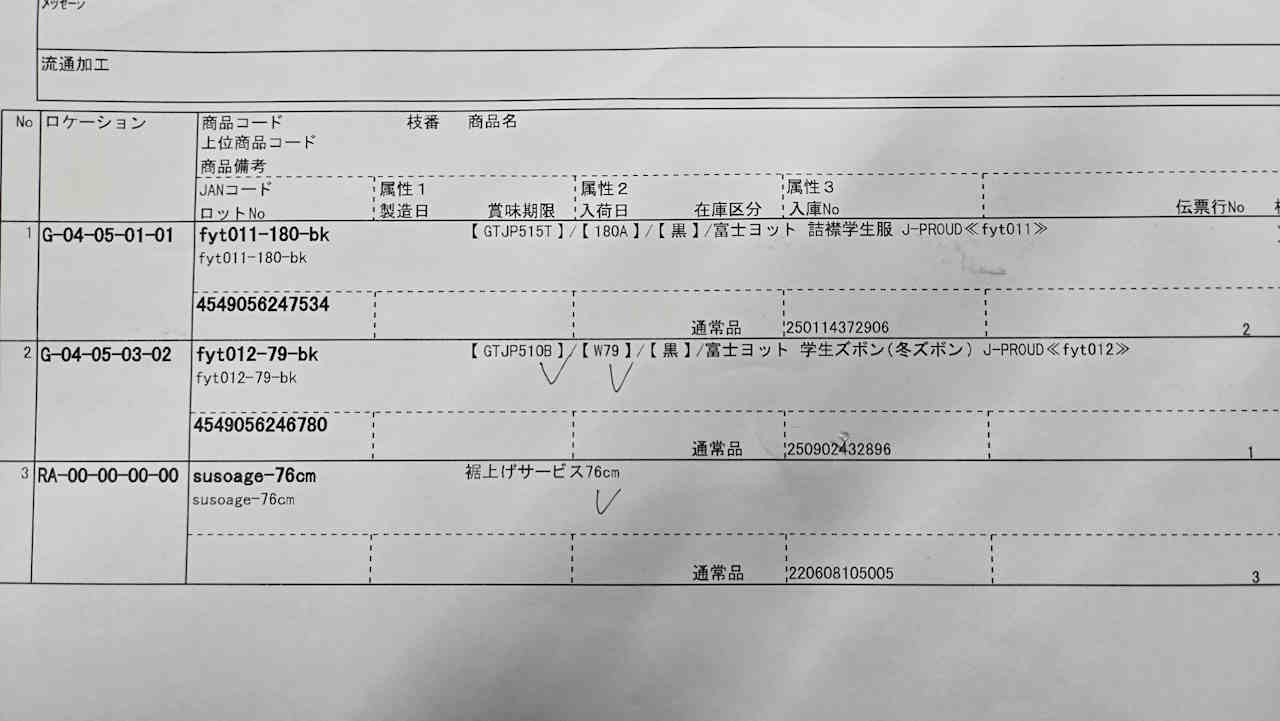 メッセージ
流通加工
No ロケーション 商品コード 枝番 商品名
上位商品コード
商品備考
JANコード 属性1 属性2 属性3
ロットNo 製造日 賞味期限 入荷日 在庫区分 入庫No 伝票行No
1 G-04-05-01-01 fyt011-180-bk 【GTJP515T】/【180A】/【黒】/富士ヨット 詰襟学生服 J-PROUD≪fyt011≫
fyt011-180-bk
4549056247534
通常品 250114372906 2
2 G-04-05-03-02 fyt012-79-bk 【GTJP510B】/【W79】/【黒】/富士ヨット 学生ズボン(冬ズボン) J-PROUD≪fyt012≫
fyt012-79-bk
4549056246780
通常品 250902432896 1
3 RA-00-00-00-00 susoage-76cm 裾上げサービス76cm
susoage-76cm
通常品 220608105005 3